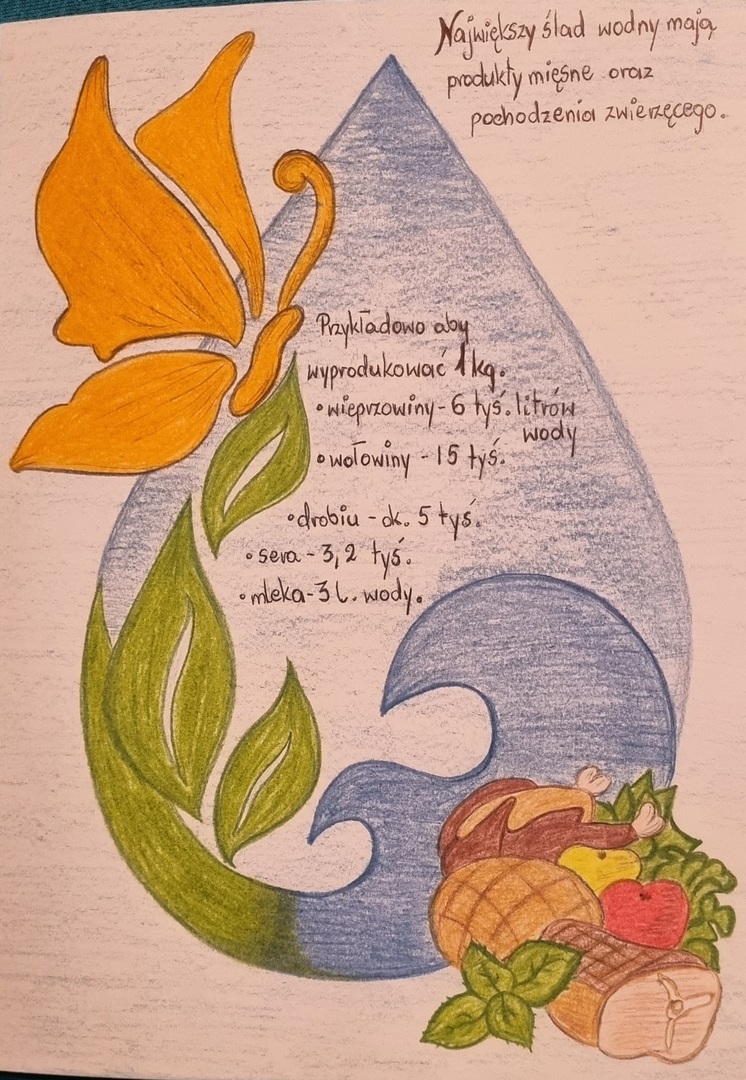 Największy ślad wodny mają
produkty mięsne oraz
pochodzenia zwierzęcego.
Przykładowo aby
wyprodukować 1 kg.
• wieprzowiny - 6 tyś. litrów
wody
• wołowiny - 15 tyś.
• drobiu - ok. 5 tyś.
• sera - 3,2 tyś.
• mleka - 3 l. wody.